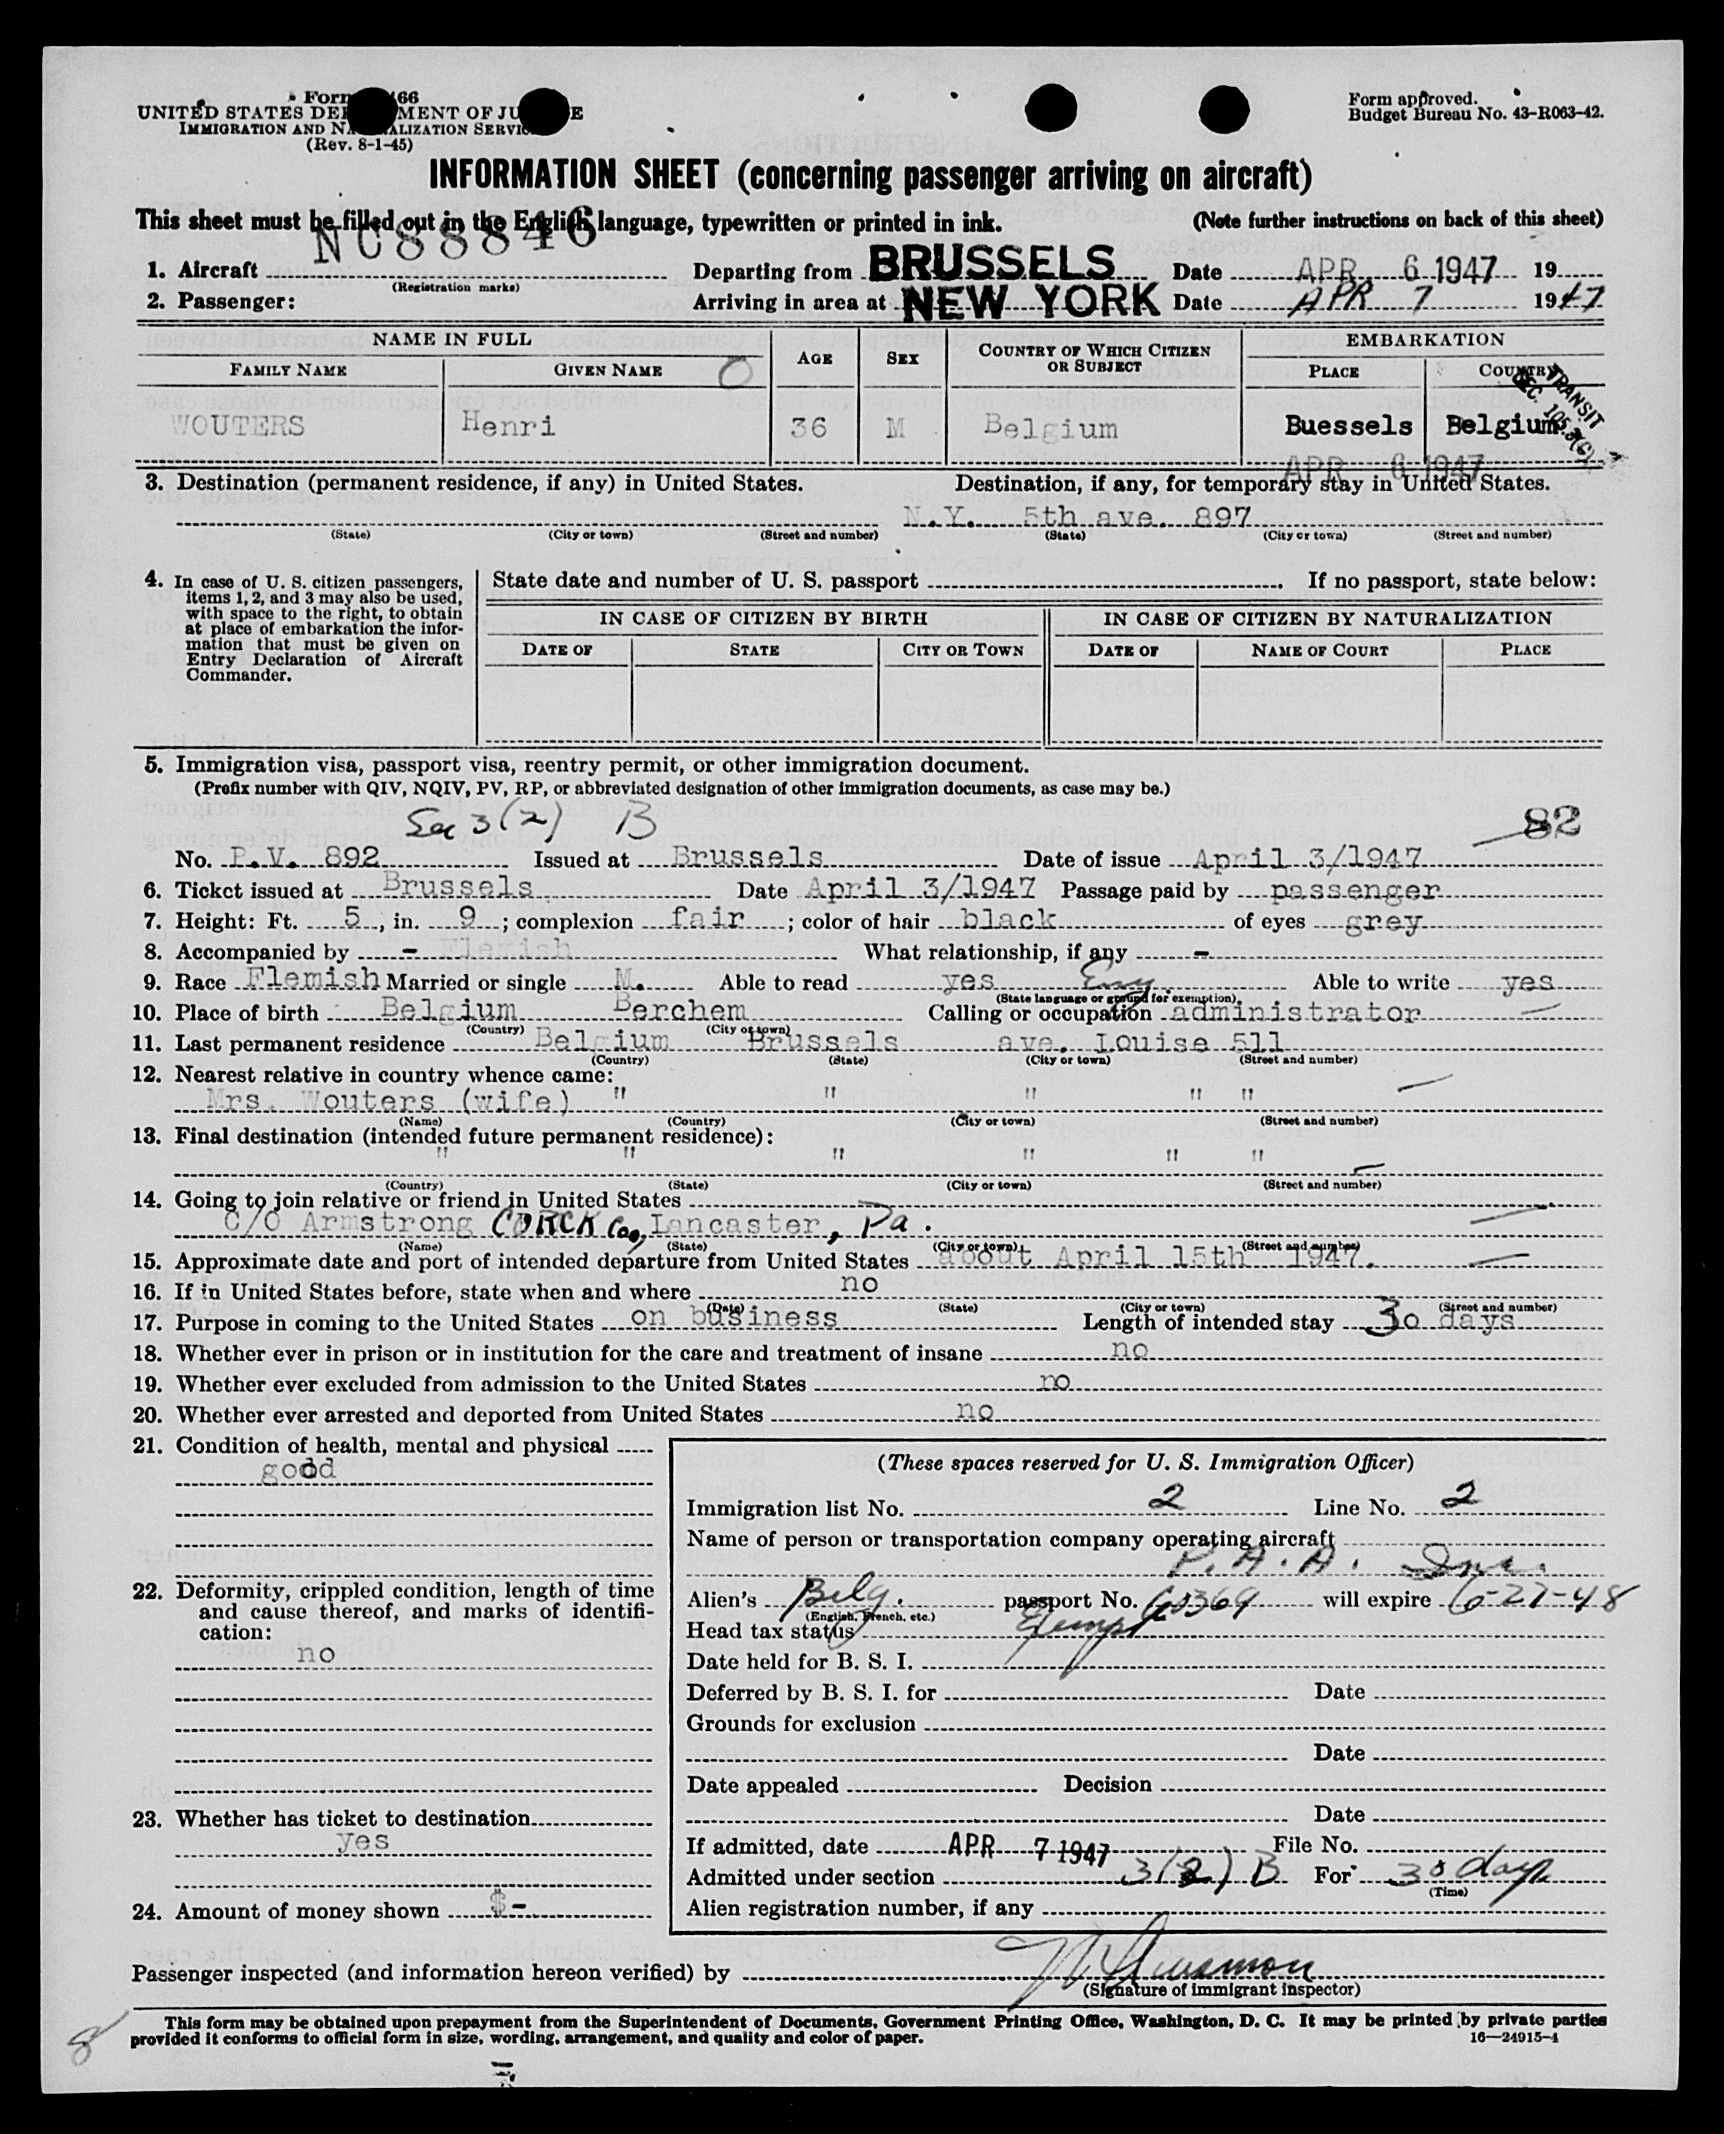 Form 66
UNITED STATES DEPARTMENT OF JUSTICE
IMMIGRATION AND NATURALIZATION SERVICE
(Rev. 8-1-45)
Form approved.
Budget Bureau No. 43-R063-42.
INFORMATION SHEET (concerning passenger arriving on aircraft)
This sheet must be filled out in the English language, typewritten or printed in ink.
(Note further instructions on back of this sheet)
NC88846
1. Aircraft
(Registration marks)
Departing from BRUSSELS Date APR 6 1947 19
2. Passenger:
Arriving in area at NEW YORK Date APR 7 1947
NAME IN FULL
FAMILY NAME GIVEN NAME
AGE SEX
COUNTRY OF WHICH CITIZEN
OR SUBJECT
EMBARKATION
PLACE COUNTRY
TRANSIT
WOUTERS Henri 36 M Belgium Buessels Belgium.
APR 6 1947
3. Destination (permanent residence, if any) in United States. Destination, if any, for temporary stay in United States.
N.Y. 5th ave. 897
(State) (City or town) (Street and number) (State) (City or town) (Street and number)
4. In case of U. S. citizen passengers,
items 1, 2, and 3 may also be used,
with space to the right, to obtain
at place of embarkation the infor-
mation that must be given on
Entry Declaration of Aircraft
Commander.
State date and number of U. S. passport If no passport, state below:
IN CASE OF CITIZEN BY BIRTH IN CASE OF CITIZEN BY NATURALIZATION
DATE OF STATE CITY OR TOWN DATE OF NAME OF COURT PLACE
5. Immigration visa, passport visa, reentry permit, or other immigration document.
(Prefix number with QIV, NQIV, PV, RP, or abbreviated designation of other immigration documents, as case may be.)
Sec 3(2) B 82
No. P.V. 892 Issued at Brussels Date of issue April 3/1947
6. Ticket issued at Brussels Date April 3/1947 Passage paid by passenger
7. Height: Ft. 5, in. 9; complexion fair; color of hair black of eyes grey
8. Accompanied by - Flemish What relationship, if any -
9. Race Flemish Married or single M. Able to read yes Eng. Able to write yes
(State language or ground for exemption)
10. Place of birth Belgium Berchem Calling or occupation administrator
(Country) (City or town)
11. Last permanent residence Belgium Brussels ave. Louise 511
(Country) (State) (City or town) (Street and number)
12. Nearest relative in country whence came:
Mrs. Wouters (wife) " " " " "
(Name) (Country) (City or town) (Street and number)
13. Final destination (intended future permanent residence):
" " " " " "
(Country) (State) (City or town) (Street and number)
14. Going to join relative or friend in United States
C/O Armstrong CORCK Co., Lancaster, Pa.
(Name) (State) (City or town) (Street and number)
15. Approximate date and port of intended departure from United States about April 15th 1947.
16. If in United States before, state when and where no
(Date) (State) (City or town) (Street and number)
17. Purpose in coming to the United States on business Length of intended stay 30 days
18. Whether ever in prison or in institution for the care and treatment of insane no
19. Whether ever excluded from admission to the United States no
20. Whether ever arrested and deported from United States no
21. Condition of health, mental and physical
good
22. Deformity, crippled condition, length of time
and cause thereof, and marks of identifi-
cation:
no
23. Whether has ticket to destination
yes
24. Amount of money shown $-
(These spaces reserved for U. S. Immigration Officer)
Immigration list No. 2 Line No. 2
Name of person or transportation company operating aircraft
P. A. A. Inc.
Alien's Belg. passport No. will expire 6-27-48
(English, French, etc.)
Head tax status Exempt
Date held for B. S. I.
Deferred by B. S. I. for Date
Grounds for exclusion
Date
Date appealed Decision
Date
If admitted, date APR 7 1947 File No.
Admitted under section 3(2) B For 30 days
(Time)
Alien registration number, if any
Passenger inspected (and information hereon verified) by
(Signature of immigrant inspector)
This form may be obtained upon prepayment from the Superintendent of Documents, Government Printing Office, Washington, D. C. It may be printed by private parties
provided it conforms to official form in size, wording, arrangement, and quality and color of paper.
16—24915-4
8